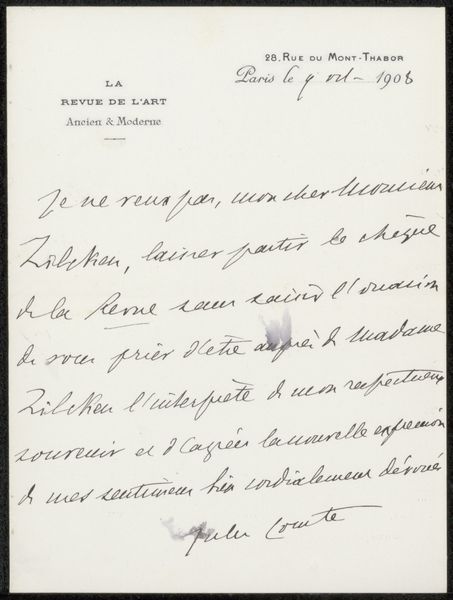 28. RUE DU MONT-THABOR
LA
REVUE DE L'ART
Ancien & Moderne
Paris le 9 oct- 1908
Je ne veux pas, mon cher Monsieur
Zilcken, laisser partir le chèque
de la Revue sans saisir l'occasion
de vous prier d'être auprès de Madame
Zilcken l'interprète de mon respectueux
souvenir et d'agréer la nouvelle expression
de mes sentiments bien cordialement dévoués
Jules Comte